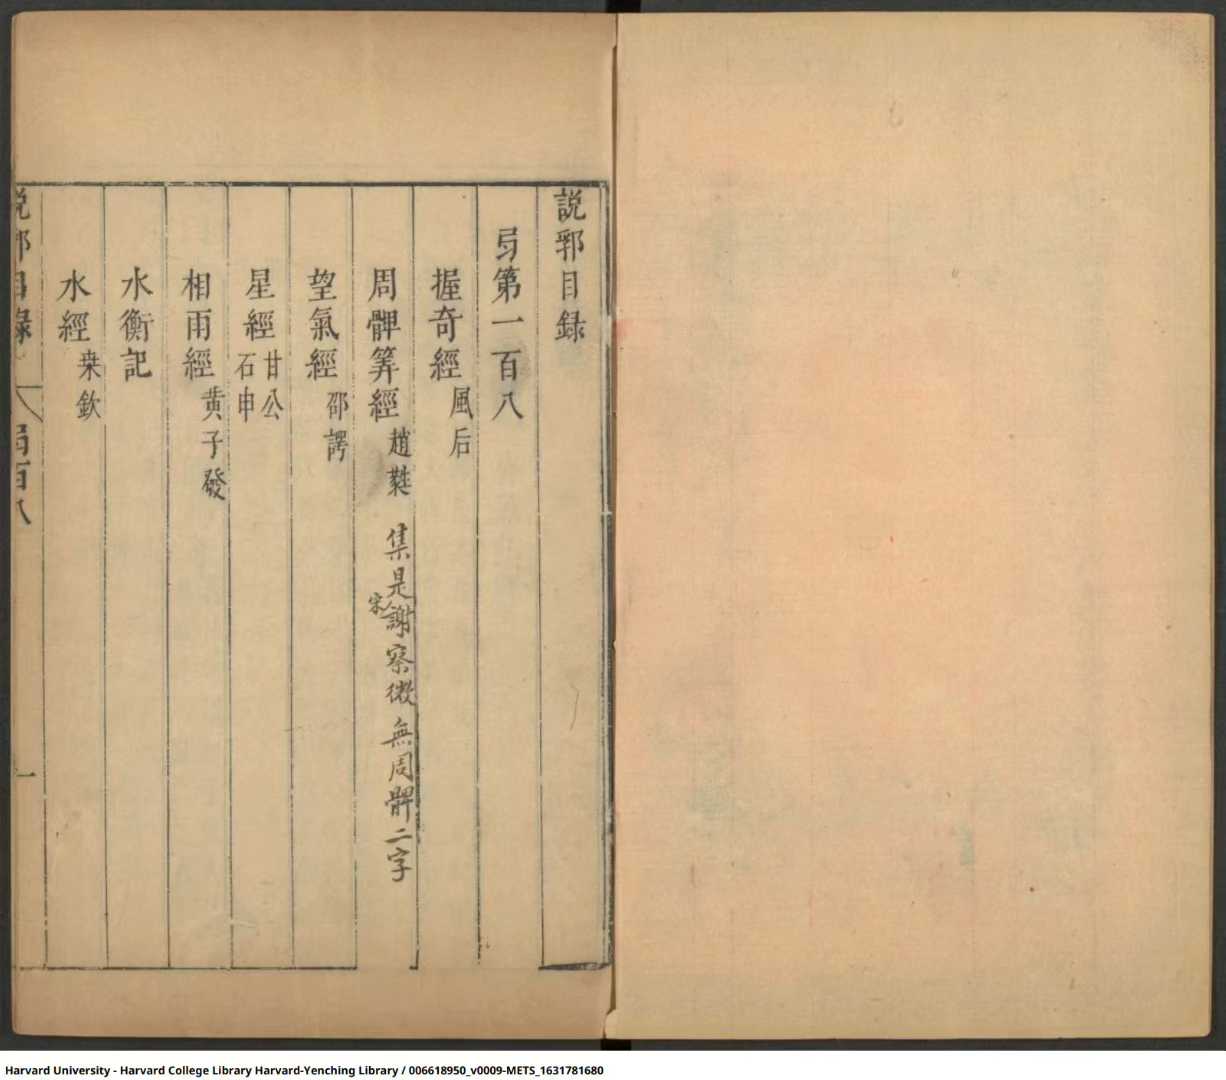 説郛目録
弓第一百八
握奇經 風后
周髀筭經 趙㛃
集是宋謝察微無周髀二字
望氣經 邵諤
星經 甘公 石申
相雨經 黃子發
水衡記
水經 桒欽
説郛目錄 弓百八 一
Harvard University - Harvard College Library Harvard-Yenching Library / 006618950_v0009-METS_1631781680